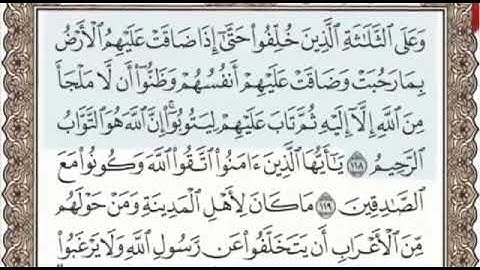 وَعَلَى ٱلثَّلَٰثَةِ ٱلَّذِينَ خُلِّفُوا۟ حَتَّىٰٓ إِذَا ضَاقَتْ عَلَيْهِمُ ٱلْأَرْضُ
بِمَا رَحُبَتْ وَضَاقَتْ عَلَيْهِمْ أَنفُسُهُمْ وَظَنُّوٓا۟ أَن لَّا مَلْجَأَ
مِنَ ٱللَّهِ إِلَّآ إِلَيْهِ ثُمَّ تَابَ عَلَيْهِمْ لِيَتُوبُوٓا۟ ۚ إِنَّ ٱللَّهَ هُوَ ٱلتَّوَّابُ
ٱلرَّحِيمُ ١١٨ يَٰٓأَيُّهَا ٱلَّذِينَ ءَامَنُوا۟ ٱتَّقُوا۟ ٱللَّهَ وَكُونُوا۟ مَعَ
ٱلصَّٰدِقِينَ ١١٩ مَا كَانَ لِأَهْلِ ٱلْمَدِينَةِ وَمَنْ حَوْلَهُم
مِّنَ ٱلْأَعْرَابِ أَن يَتَخَلَّفُوا۟ عَن رَّسُولِ ٱللَّهِ وَلَا يَرْغَبُوا۟